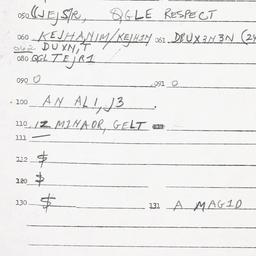 050 ((JEJS/R, QGLE RESPECT
060 KEJHANIM/KEJHIN 061 DRUX3N3N (24
062 DUXN,T
080 QGLTEJR1
090 0 091 0
100 AN ALI, J3 .
110 12 MINAOR, GELT
111 —
112 $
120 $
130 $ 131 A MAGID